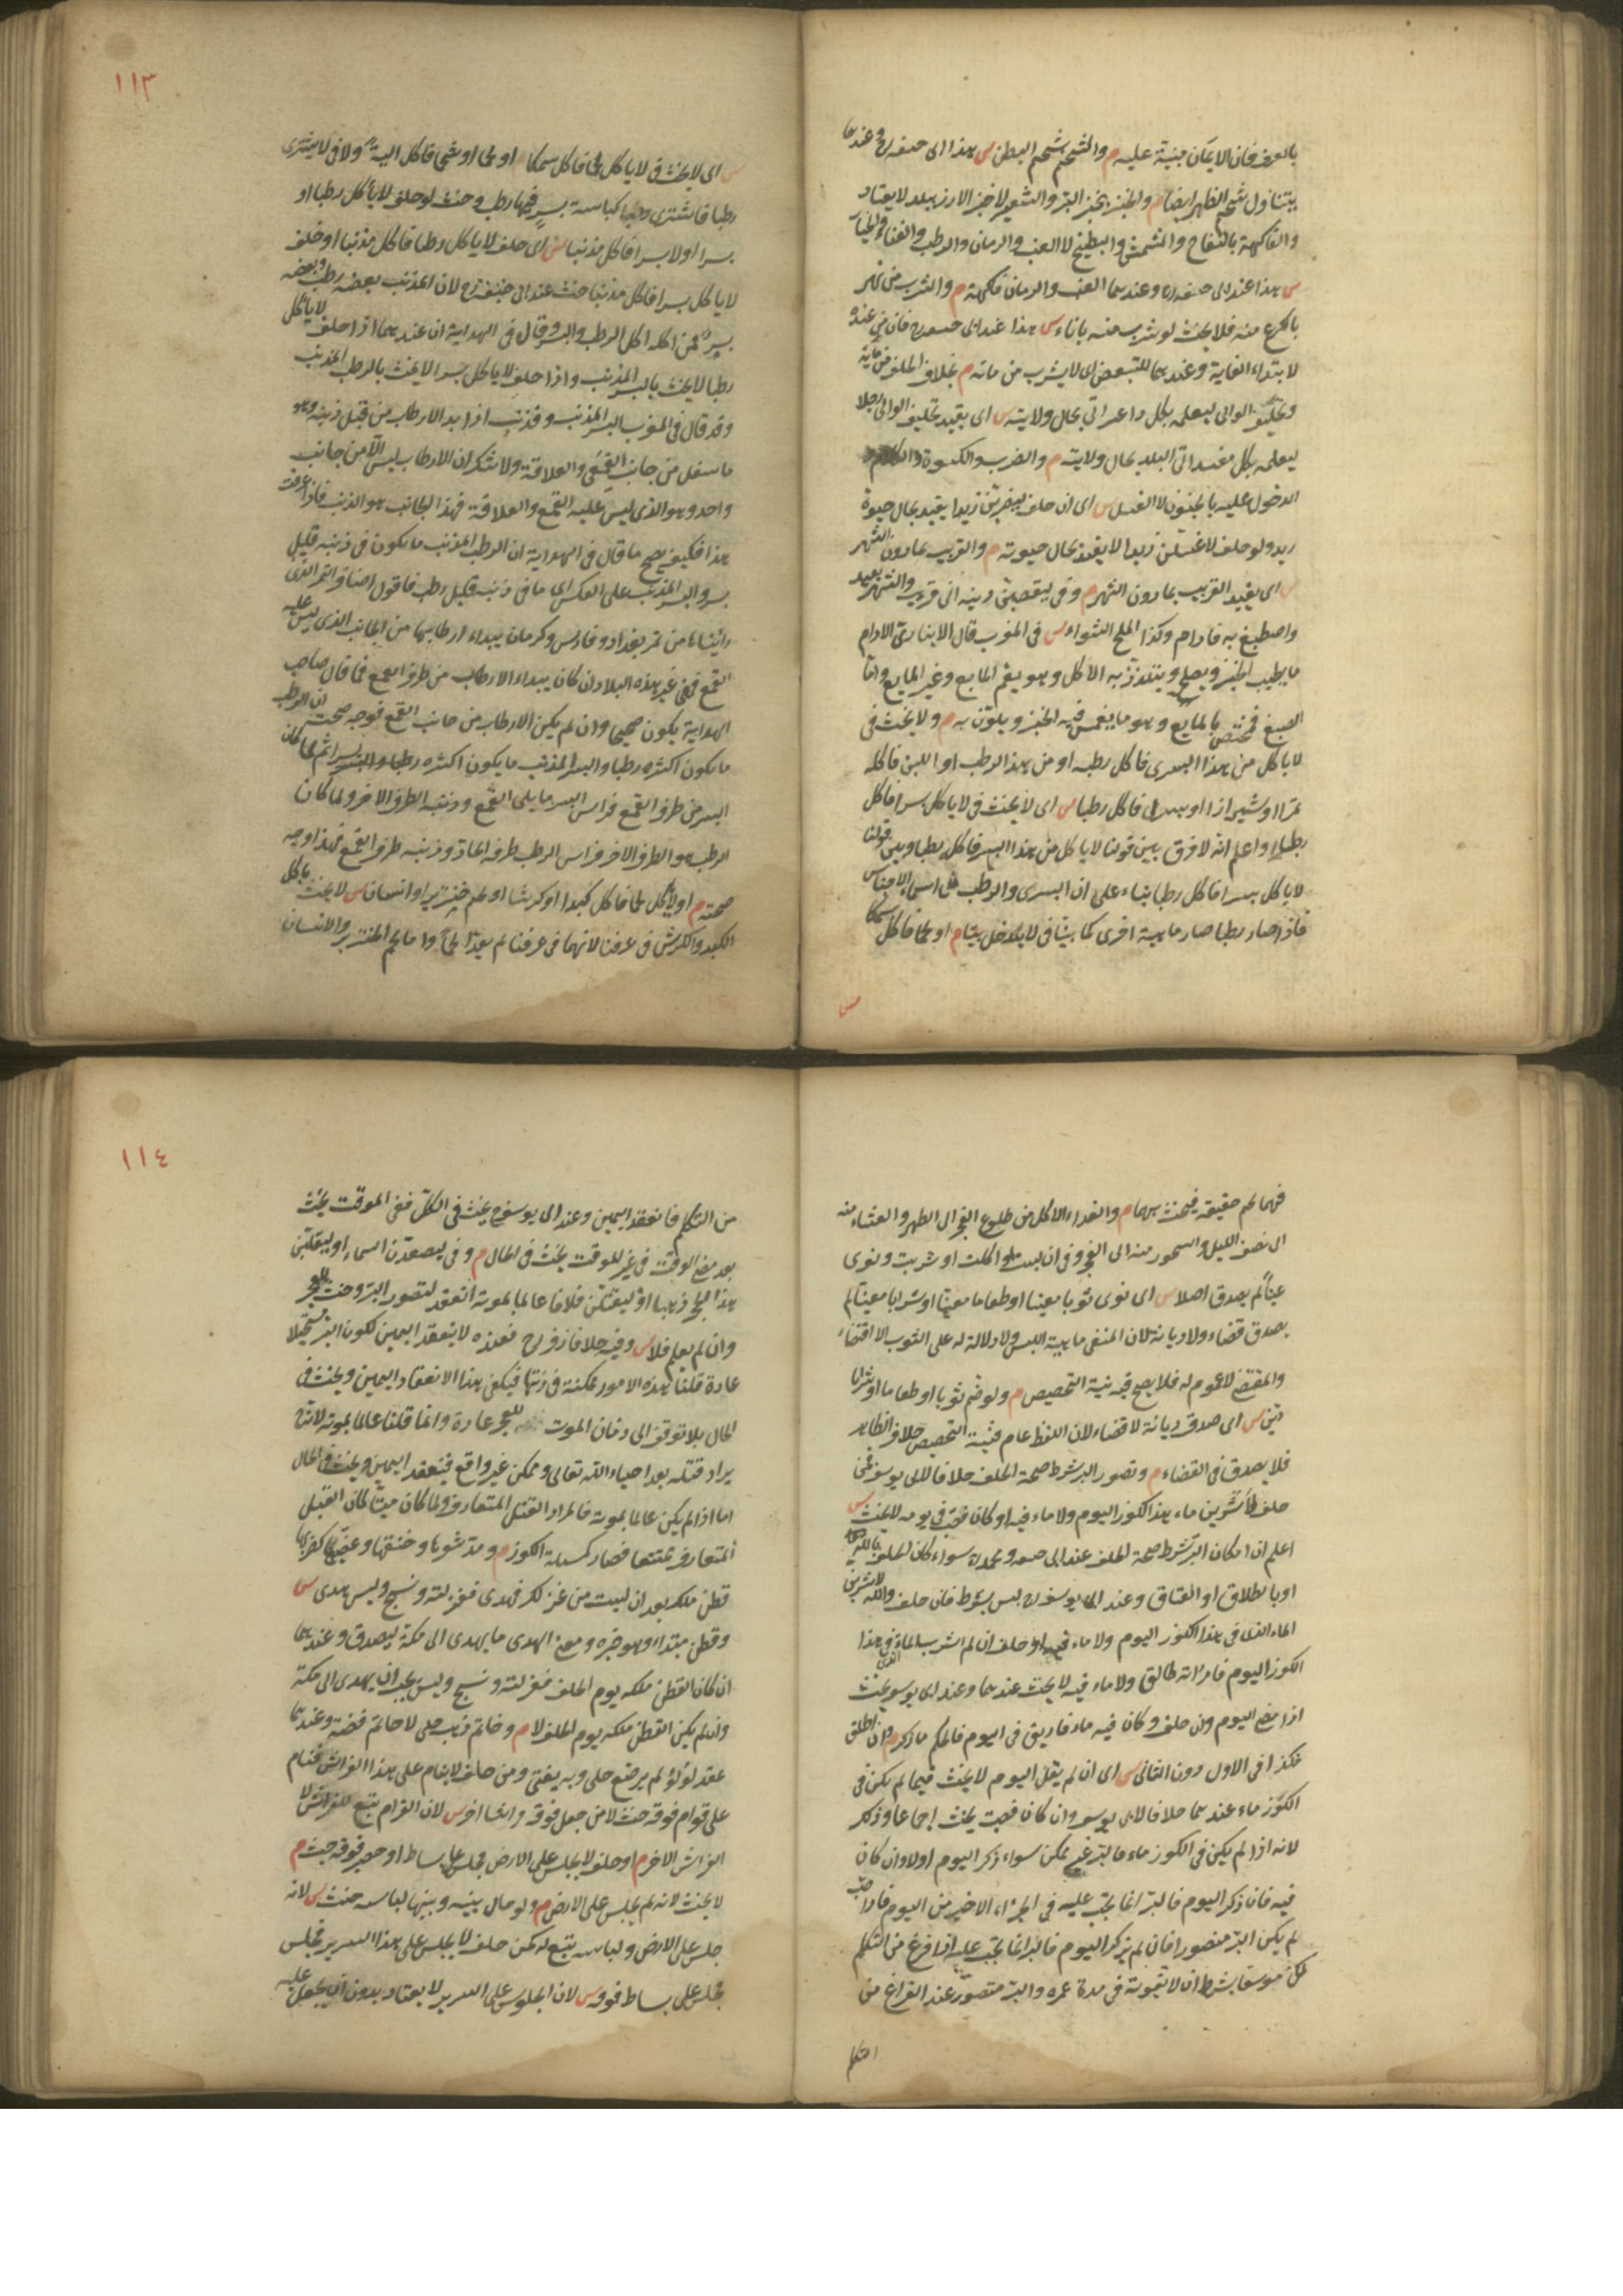 بالعرف فان الايمان مبنية عليه م والشحم شحم البطن س هذا ابى حنيفة رح وعندهما
يتناول شحم الظهر ايضا م والخبز بخبز البر والشعير لا خبز الارز ببلد لا يعتاد
والفاكهة بالتفاح والمشمش والبطيخ لا العنب والرمان والرطب والقثاء والخيار
س هذا عند ابى حنيفة رح وعندهما العنب والرمان فاكهة م والشرب من نهر
بالكرع منه فلا يحنث لو شرب منه باناء س هذا عند ابى حنيفة رح فان من عنده
لابتداء الغاية وعندهما للتبعيض اى لا يشرب من مائه م بخلاف الحلف من مائه
وتحليف الوالى ليعلمه بكل داعر اتى بحال ولايته س اى يقيد تحليف الوالى رجلا
ليعلمه بكل مفسد اتى البلد بحال ولايته م والضرب والكسوة والكلام
الدخول عليه بالحيوة لا الغسل س اى ان حلف ليضربن زيدا يقيد بحال حيوة
زيد ولو حلف لاغسلن زيدا لا يقيد بحال حيوته م والقريب بما دون الشهر
س اى يقيد القريب بما دون الشهر م وفى ليقضين دينه الى قريب والشهر بعيد
واصطبغ به فادام وكذا الملح لا الشواء س فى المغرب قال الانبارى الادام
ما يطيب الخبز ويصلحه ويتلذذ به الاكل وهو يعم المايع وغير المايع واما
الصبغ فمختص بالمايع وهو ما يغمس فيه الخبز ويلون به م ولا يحنث فى
لا ياكل من هذا البسر فاكل رطبه او من هذا الرطب او اللبن فاكله
تمرا او شيرازا او بسرا فاكل رطبا س اى لا يحنث فى لا ياكل بسرا فاكل
رطبا واعلم انه لا فرق بين قولنا لا ياكل من هذا البسر فاكل رطبا وبين قولنا
لا ياكل بسرا فاكل رطبا بناء على ان البسر والرطب من اسماء الاجناس
فاذا صار رطبا صار ماهية اخرى كما بينا فى لا يدخل بيتا م او لحما فاكل سمكا
س
١١٣
س اى لا يحنث فى لا ياكل لحما فاكل سمكا م او لحما او شحما فاكل الية ولا فى لا يشترى
رطبا فاشترى كباسة بسر فيها رطب وحنث لو حلف لا ياكل رطبا او
بسرا او لا بسرا فاكل مذنبا س اى حلف لا ياكل رطبا فاكل مذنبا او حلف
لا ياكل بسرا فاكل مذنبا حنث عند ابى حنيفة رح لان المذنب بعضه رطب وبعضه
بسر فمن اكله اكل الرطب والبسر وقال فى الهداية ان عندهما اذا حلف لا ياكل
رطبا لا يحنث بالبسر المذنب واذا حلف لا ياكل بسرا لا يحنث بالرطب المذنب
وقد قال فى المغرب البسر المذنب وقد ذنب اذا بدا الارطاب من قبل ذنبه وهو
ما سفل من جانب القمع والعلاقة ولا شك ان الارطاب ليس الا من جانب
واحد وهو الذى ليس عليه القمع والعلاقة فهذا الجانب هو الذنب فاذا عرفت
هذا فكيف يصح ما قال فى الهداية ان الرطب المذنب ما يكون فى ذنبه قليل
بسر والبسر المذنب على العكس اى ما فى ذنبه قليل رطب فاقول اصناف التمر الذى
رايناها من تمر بغداد وفارس وكرمان يبداء ارطابها من الجانب الذى ليس عليه
القمع ففى غير هذه البلاد ان كان يبداء الارطاب من طرف القمع فما قال صاحب
الهداية يكون صحيحا وان لم يكن الارطاب من جانب القمع فوجه صحته ان الرطب
ما يكون اكثره رطبا والبسر المذنب ما يكون اكثره بسرا ثم لما كان
البسر من طرف القمع فراس البسر ما يلى القمع وذنبه الطرف الاخر ولما كان
الرطب هو الطرف الاخر فراس الرطب طرفه الحادة وذنبه طرف القمع فهذا وجه
صحته م او لا ياكل لحما فاكل كبدا او كرشا او لحم خنزير او انسان س لا يحنث باكل
الكبد والكرش فى عرفنا لانهما فى عرفنا لم يعدا لحما واما لحم الخنزير والانسان
فهما لحم حقيقة فيحنث بهما م والغداء الاكل من طلوع الفجر الى الظهر والعشاء منه
الى نصف الليل والسحور منه الى الفجر وفى ان لبست او اكلت او شربت ونوى
عينا لم يصدق اصلا س اى نوى ثوبا معينا او طعاما معينا او شرابا معينا لم
يصدق قضاء ولا ديانة لان المنفى ماهية اللبس ولا دلالة له على الثوب الا اقتضاء
والمقتضى لا عموم له فلا يصح فيه نية التخصيص م ولو ضم ثوبا او طعاما او شرابا
دين س اى صدق ديانة لا قضاء لان اللفظ عام فنية التخصيص خلاف الظاهر
فلا يصدق فى القضاء م وتصور البر شرط صحة الحلف خلافا لابى يوسف فمن
حلف لاشربن ماء هذا الكوز اليوم ولا ماء فيه او كان فصب فى يومه لا يحنث س
اعلم ان امكان البر شرط صحة الحلف عند ابى حنيفة ومحمد رح سواء كان الحلف بالله
او بالطلاق او العتاق وعند ابى يوسف رح ليس بشرط فان حلف والله لاشربن
الماء الذى فى هذا الكوز اليوم ولا ماء فيه او حلف ان لم اشرب الماء الذى فى هذا
الكوز اليوم فامراته طالق ولا ماء فيه لا يحنث عندهما وعند ابى يوسف يحنث
اذا مضى اليوم وان حلف وكان فيه ماء فاريق فى اليوم فالحكم ما ذكر م وان اطلق
فكذا فى الاول دون الثانى س اى ان لم يقل اليوم لا يحنث فيما لم يكن فى
الكوز ماء عندهما خلافا لابى يوسف وان كان فصب يحنث اجماعا وذلك
لانه اذا لم يكن فى الكوز ماء فالبر غير ممكن سواء ذكر اليوم او لا وان كان
فيه فان ذكر اليوم فالبر انما يجب عليه فى الجزء الاخير من اليوم فاذا صب
لم يكن البر متصورا فان لم يذكر اليوم فالبر انما يجب عليه اذا فرغ من التكلم
لكن موسعا بشرط ان لا تفوته فى مدة عمره والبر متصور عند الفراغ من
التكلم
١١٤
من التكلم فانعقد اليمين وعند ابى يوسف رح يحنث فى الكل ففى الموقت يحنث
بعد مضى الوقت فى غير الموقت يحنث فى الحال م وفى ليصعدن السماء او ليقلبن
هذا الحجر ذهبا او ليقتلن فلانا عالما بموته انعقد لتصور البر وحنث للعجز
وان لم يعلم فلا س وفيه خلاف زفر رح فعنده لا ينعقد اليمين لكون البر مستحيلا
عادة قلنا هذه الامور ممكنة فى ذاتها فيكفى هذا الانعقاد اليمين ويحنث فى
الحال بلا توقف الى زمان الموت للعجز عادة وانما قلنا عالما بموته لانه
يراد قتله بعد احياء الله تعالى وممكن غير واقع فينعقد اليمين ويحنث فى الحال
اما اذا لم يكن عالما بموته فالمراد القتل المتعارف ولما كان ميتا كان القتل
المتعارف ممتنعا فصار كمسئلة الكوز م ومد شعرها وخنقها وعضها كضربها
قطن ملكه بعد ان لبست من غزلك فهدى فغزلته ونسج ولبس هدى س
وقطن مبتداء وهو خبره ومعنى الهدى ما يهدى الى مكة ليصدق وعندهما
ان كان القطن ملكه يوم الحلف فغزلته ونسج ولبس يجب ان يهدى الى مكة
وان لم يكن القطن ملكه يوم الحلف لا م وخاتم ذهب حلى لا خاتم فضة وعندهما
عقد لؤلؤ لم يرصع حلى وبه يفتى ومن حلف لا ينام على هذا الفراش فنام
على قرام فوقه حنث لا من جعل فوقه فراشا اخر س لان القرام يتبع للفراش لا
الفراش الاخر م او حلف لا يجلس على الارض فجلس على بساط او حصير فوقه حنث م
لا يحنث لانه لم يجلس على الارض م ولو حال بينه وبينها لباسه حنث س لانه
جلس على الارض ولباسه يتبع له كمن حلف لا يجلس على هذا السرير فجلس
فجلس على بساط فوقه س لان الجلوس على السرير لا يعتاد بدون ان يجعل عليه